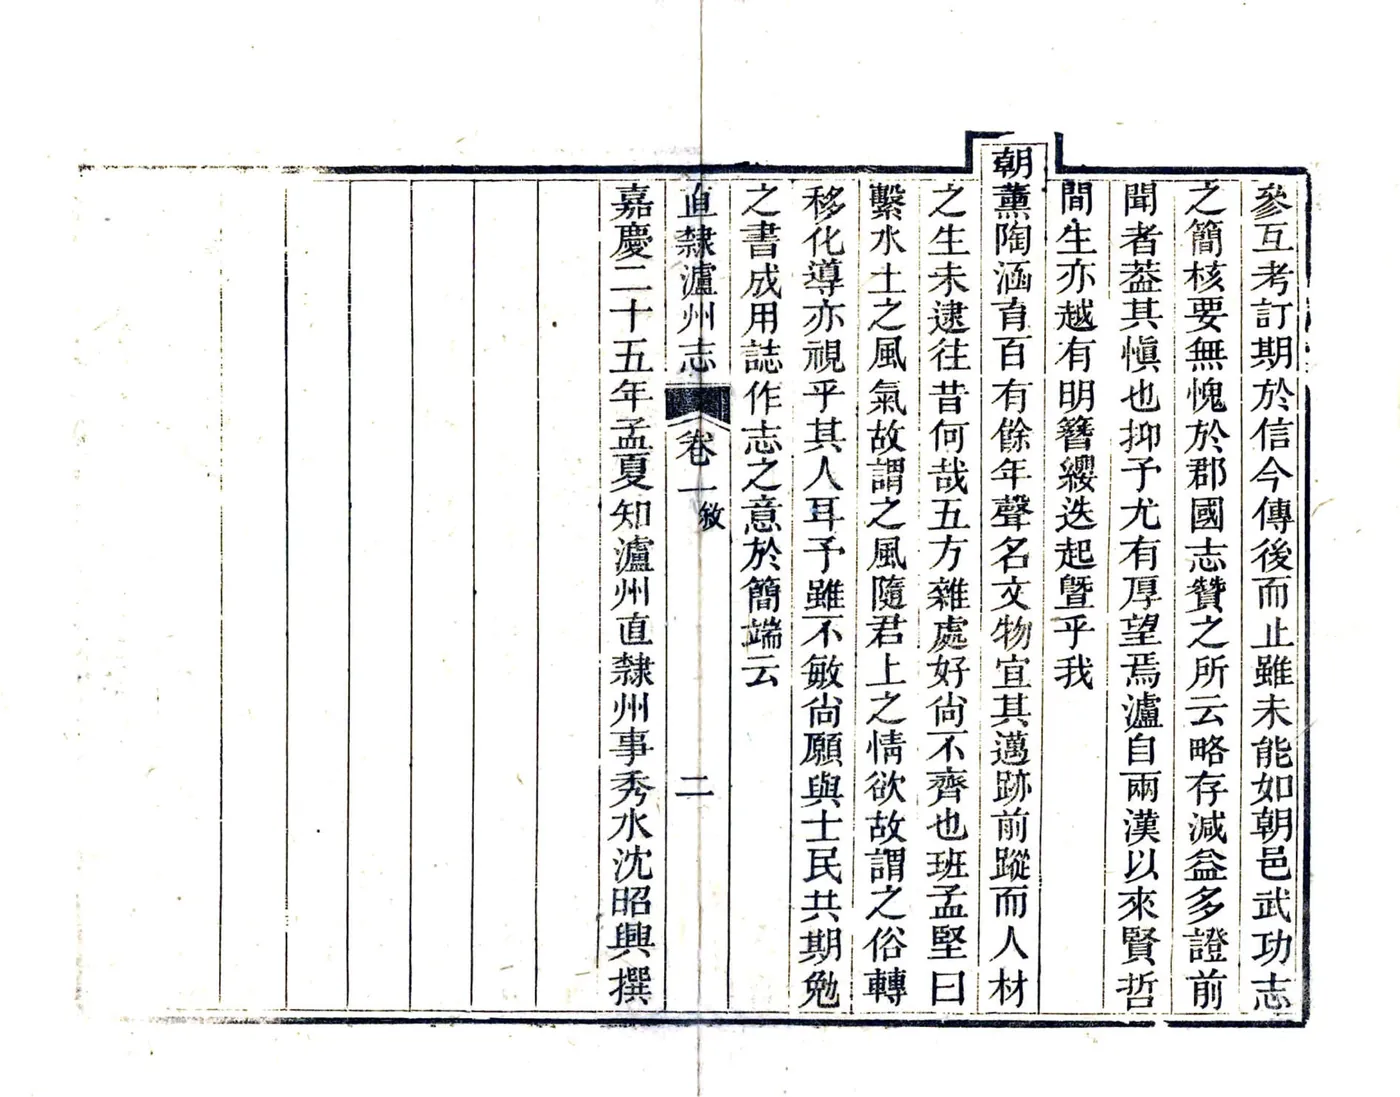 參互考訂期於信今傳後而止雖未能如朝邑武功志
之簡核要無愧於郡國志贊之所云略存減益多證前
聞者葢其愼也抑予尤有厚望焉瀘自兩漢以來賢哲
間生亦越有明簪纓迭起曁乎我
朝薰陶涵育百有餘年聲名文物宜其邁跡前蹤而人材
之生未逮往昔何哉五方雜處好尙不齊也班孟堅曰
繫水土之風氣故謂之風隨君上之情欲故謂之俗轉
移化導亦視乎其人耳予雖不敏尙願與士民共期勉
之書成用誌作志之意於簡端云
直隸瀘州志 卷一 敘 二
嘉慶二十五年孟夏知瀘州直隸州事秀水沈昭興撰